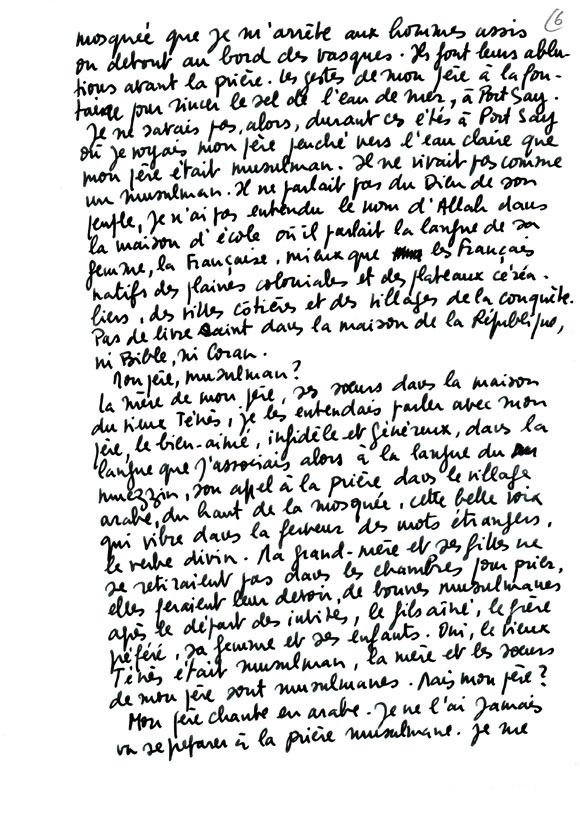 (6
mosquée que je m'arrête aux hommes assis
ou debout au bord des vasques. Ils font leurs ablu-
tions avant la prière. Les gestes de mon père à la fon-
taine pour rincer le sel de l'eau de mer, à Port Say.
Je ne savais pas, alors, durant ces étés à Port Say
où je voyais mon père penché vers l'eau claire que
mon père était musulman. Il ne vivait pas comme
un musulman. Il ne parlait pas du Dieu de son
peuple, je n'ai pas entendu le nom d'Allah dans
la maison d'école où il parlait la langue de sa
femme, la Française, mieux que les Français
natifs des plaines coloniales et des plateaux céréa-
liers, des villes côtières et des villages de la conquête.
Pas de livre saint dans la maison de la République,
ni Bible, ni Coran.
Mon père, musulman?
La mère de mon père, ses sœurs dans la maison
du vieux Ténès, je les entendais parler avec mon
père, le bien-aimé, infidèle et généreux, dans la
langue que j'associais alors à la langue du
muezzin, son appel à la prière dans le village
arabe, du haut de la mosquée, cette belle voix
qui vibre dans la ferveur des mots étrangers,
le verbe divin. Ma grand-mère et ses filles ne
se retiraient pas dans les chambres pour prier,
elles feraient leur devoir, de bonnes musulmanes
après le départ des invités, le fils aîné, le frère
préféré, sa femme et ses enfants. Oui, le vieux
Ténès était musulman, la mère et les sœurs
de mon père sont musulmanes. Mais mon père?
Mon père chante en arabe. Je ne l'ai jamais
vu se préparer à la prière musulmane. Je me